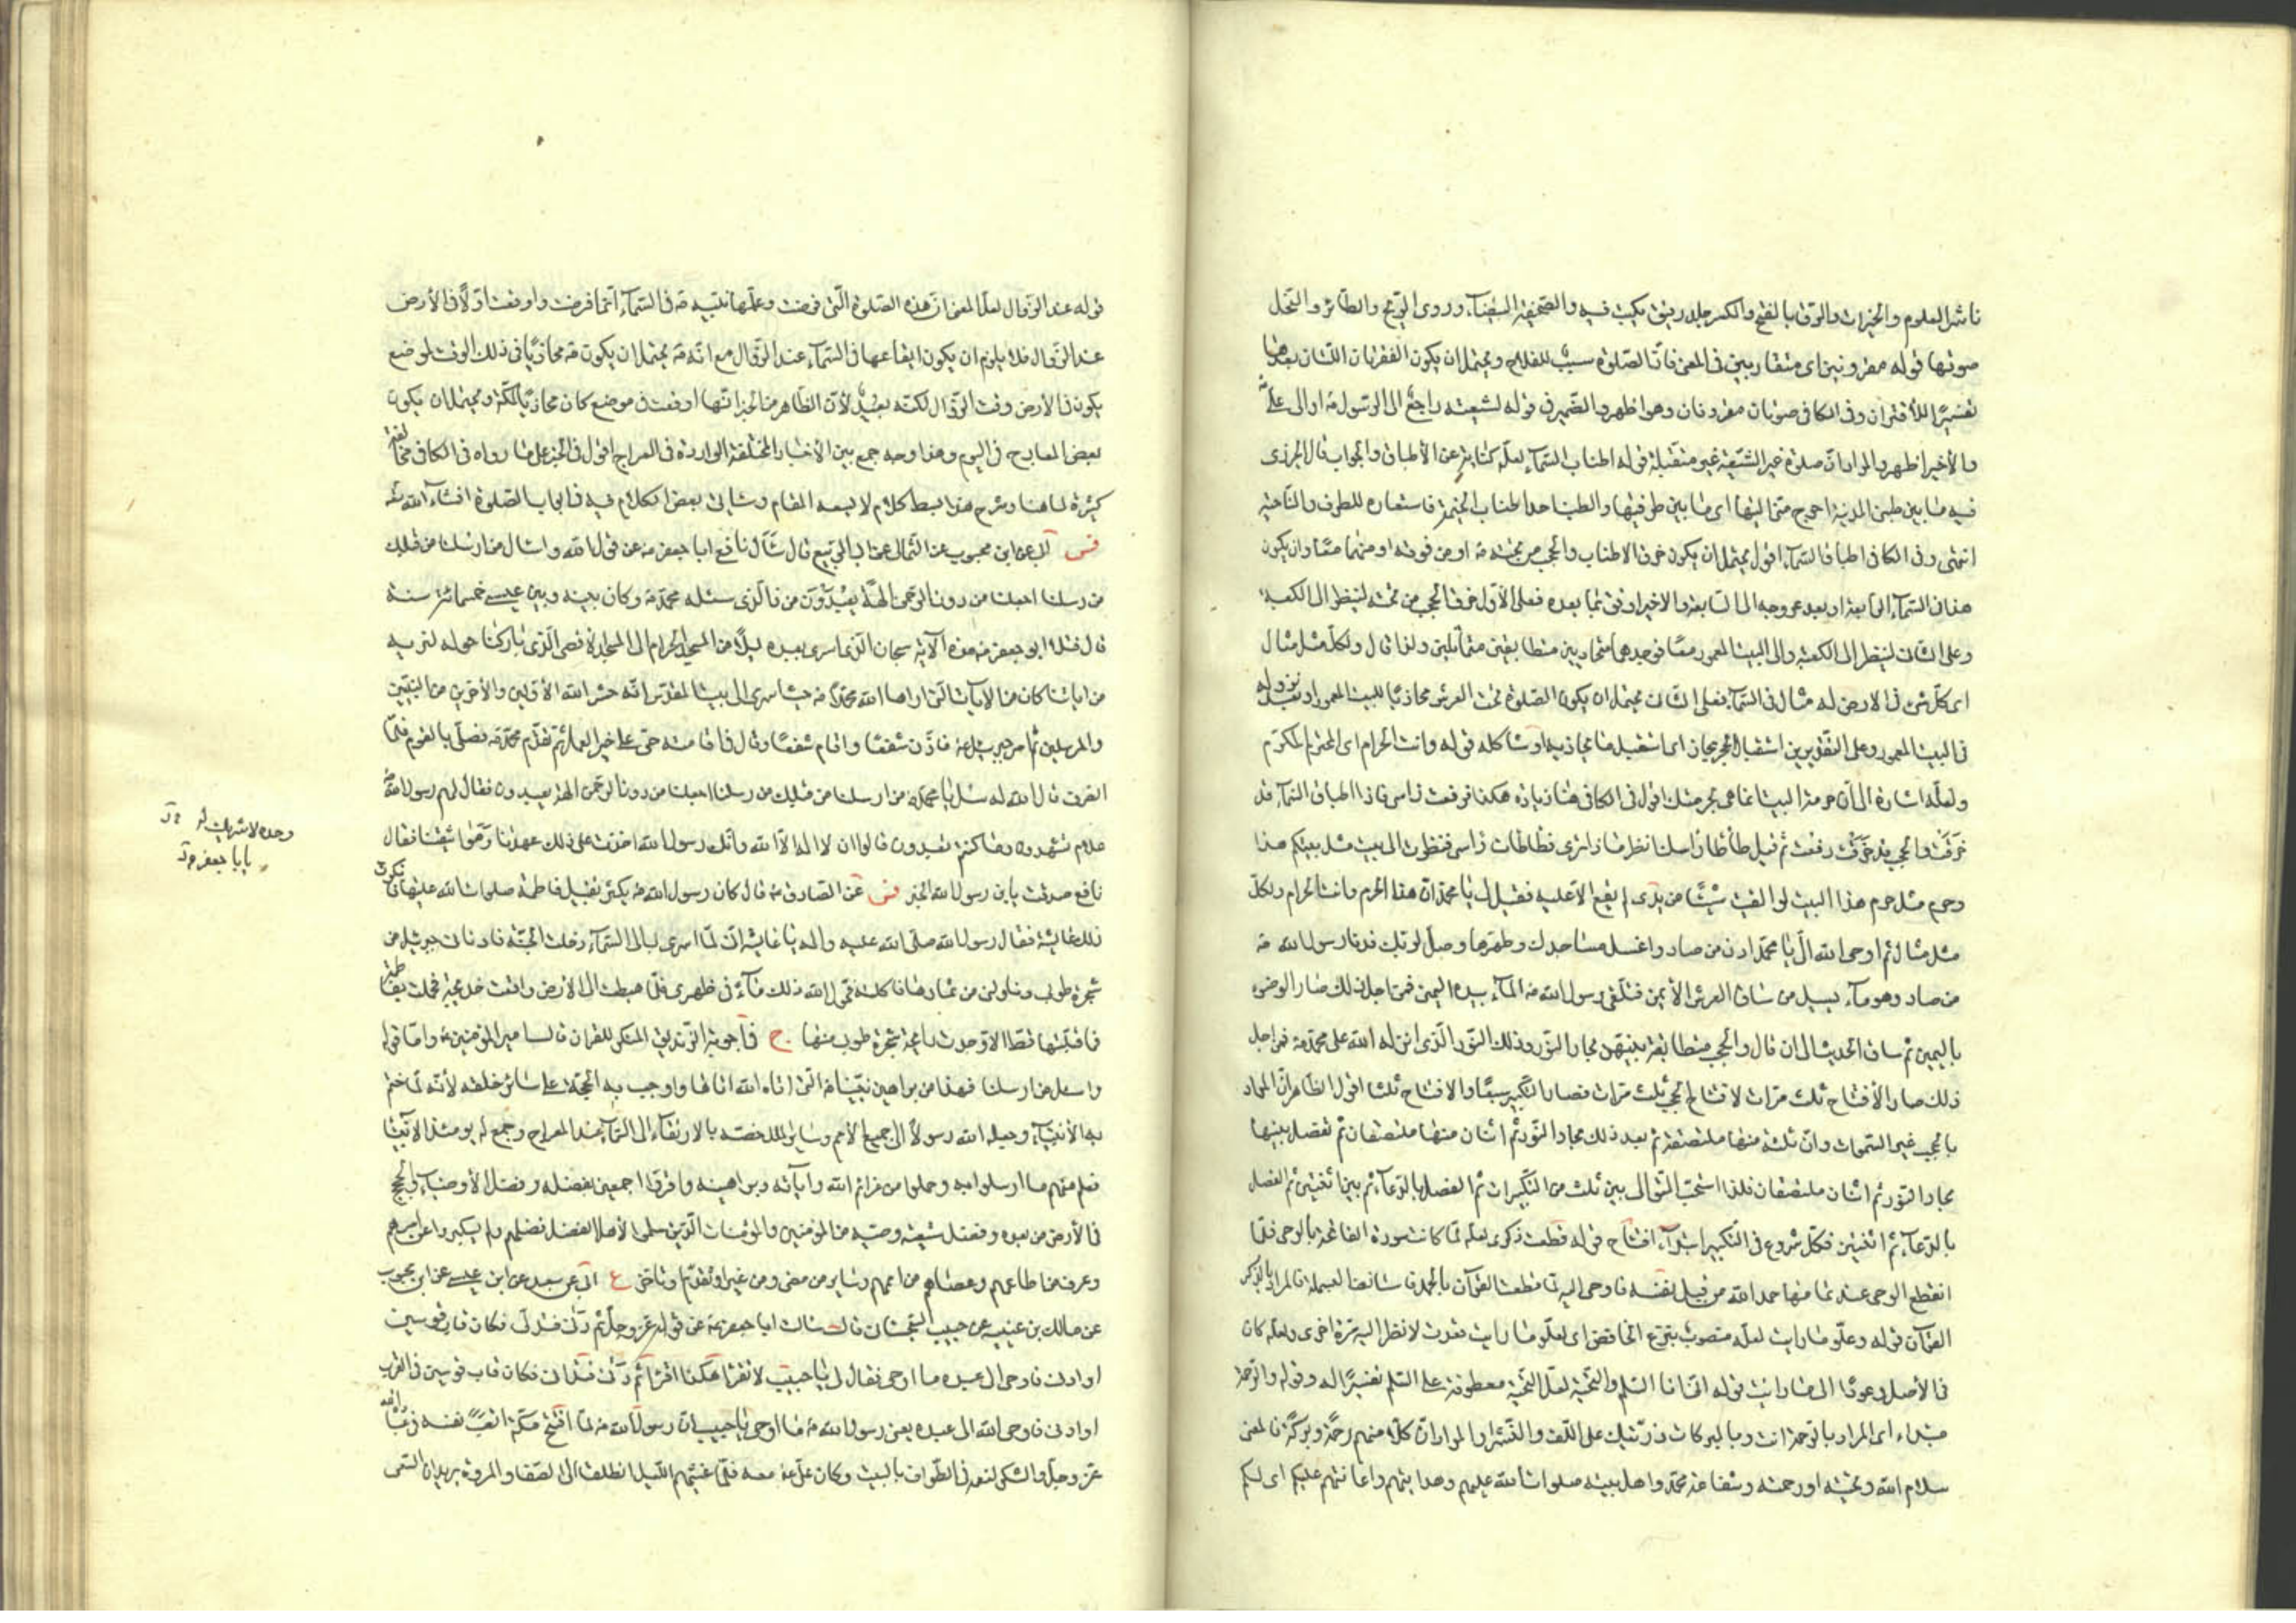 ناشر العلوم والخيرات والرق بالفتح والكسر جلد رقيق يكتب فيه والصحيفة البيضاء وروى الريح والطائر والنحل
صوتها قوله مقرونين اى متقاربين فى المعنى فان الصلوة سبب للفلاح ويحتمل ان يكون الفقرتان اللتان بعدهما
تفسيرا للاقتران وفى الكافى صوتان مقرونان وهو اظهر والضمير فى قوله لشيعته راجع الى الرسول ص او الى على ع
والأخير اظهر والمراد ان صلوة غير الشيعة غير متقبلة قوله اطناب السماء لعله كناية عن الأطباق والجواب قال الجزرى
فيه ما بين طنبى المدينة احوج منى اليها اى ما بين طرفيها والطنب احد اطناب الخيمة فاستعاره للطرف والناحية
انتهى وفى الكافى اطباق السماء اقول يحتمل ان يكون خرق الاطناب والحجب من تحته ص او من فوقه او منهما معا وان يكون
هذا فى السماء الرابعة او بعد عروجه الى السابعة والاخير اوفق بما بعده فعلى الأول خرق الحجب من تحته لينظر الى الكعبة
وعلى الثانى لينظر الى الكعبة والى البيت المعمور معا فوجدهما متحاذيين متطابقين متماثلين ولذا قال ولكل مثل مثال
اى كل شئ فى الارض له مثال فى السماء فعلى الثانى يحتمل ان يكون الصلوة تحت العرش محاذيا للبيت المعمور او بعد نزوله
فى البيت المعمور وعلى التقديرين استقبال الحجر مجاز اى استقبل ما يحاذيه او يشاكله قوله وانت الحرام اى المحترم المكرم
ولعله اشارة الى ان حرمة البيت انما هى بحرمتك اقول فى الكافى هنا زيادة هكذا فرفعت راسى فاذا اطباق السماء قد
خرقت والحجب قد خرقت رفعت ثم قيل طأطأ رأسك انظر ما ذا ترى فطأطأت راسى فنظرت الى بيت مثل بيتكم هذا
وحرم مثل حرم هذا البيت لو القيت شيئا من يدى لم يقع الا عليه فقيل لى يا محمد ان هذا الحرم وانت الحرام ولكل
مثل مثال ثم اوحى الله الى يا محمد ادن من صاد واغسل مساجدك وطهرها وصل لربك فدنا رسول الله ص
من صاد وهو ماء يسيل من ساق العرش الأيمن فتلقى رسول الله ص الماء بيده اليمنى فمن اجل ذلك صار الوضوء
باليمين ثم ساق الحديث الى ان قال والحجب متطابقة بينهن بحار النور وذلك النور الذى انزله الله على محمد ص فمن اجل
ذلك صار الأفتتاح ثلث مرات لافتتاح الحجب ثلث مرات فصار التكبير سبعا والافتتاح ثلثا اقول الظاهر ان المراد
بالحجب غير السموات وان ثلثة منها ملتصقة ثم بعد ذلك بحار النور ثم اثنان منها ملتصقان ثم تفصل بينها
بحار النور ثم اثنان ملتصقان فلذا استحب التوالى بين ثلث من التكبيرات ثم الفصل بالدعاء ثم بين اثنين ثم الفصل
بالدعاء ثم اثنين فكل شروع فى التكبير ابتداء افتتاح قوله قطعت ذكرى لعله لما كانت سورة الفاتحة بالوحى فلما
انقطع الوحى عند تمامها حمد الله من قبل نفسه فاوحى اليه لما قطعت القرآن بالحمد فاستأنف البسملة فالمراد بالذكر
القرآن قوله وعلو ما رايت لعله منصوب بنزع الخافض اى لعلو ما رايت بعدت لانظر اليه مرة اخرى ولعله كان
فى الأصل وعودا الى ما رايت قوله انا السلم والتحية لعل التحية معطوفة على السلم تفسيرا له وقوله والرحمة
مبتداء اى المراد بالرحمة انت وبالبركات ذريتك على اللف والنشر او المراد ان كلا منهم رحمة وبركة فالمعنى
سلام الله وتحيته او رحمته وشفاعة محمد واهل بيته صلوات الله عليهم وهدايتهم واعانتهم عليكم اى لكم
قوله عند الزوال لعل المعنى ان هذه الصلوة التى فرضت وعلمها نبيه ص فى السماء انما فرضت واوقعت اولا فى الأرض
عند الزوال فلا يلزم ان يكون ايقاعها فى السماء عند الزوال مع انه ص يحتمل ان يكون ص محاذيا فى ذلك الوقت لموضع
يكون فى الأرض وقت الزوال لكنه بعيد لأن الظاهر من الخبر انها اوقعت فى موضع كان محاذيا لمكة ويحتمل ان يكون
بعض المعارج فى اليوم وهذا وجه جمع بين الأخبار المختلفة الواردة فى المعراج اقول فى الخبر على ما رواه فى الكافى مخالفة
كثيرة لما هنا وشرح هذا يبسط كلام لا يسعه المقام وسياتى بعض الكلام فيه فى ابواب الصلوة انشاء الله تعالى
فس ابى عن ابن محبوب عن الثمالى عن ابى الربيع قال سأل نافع ابا جعفر ع عن قول الله واسأل من ارسلنا من قبلك
من رسلنا اجعلنا من دون الرحمن الهة يعبدون من ذا الذى سئله محمد ص وكان بينه وبين عيسى خمسمائة سنة
قال فتلا ابو جعفر ع هذه الآية سبحان الذى اسرى بعبده ليلا من المسجد الحرام الى المسجد الأقصى الذى باركنا حوله لنريه
من اياتنا كان من الايات التى اراها الله محمدا ص حيث اسرى الى بيت المقدس انه حشر الله الأولين والأخرين من النبيين
والمرسلين ثم امر جبرئيل ع فاذن شفعا واقام شفعا وقال فى اقامته حى على خير العمل ثم تقدم محمد ص فصلى بالقوم فلما
انصرف قال الله له سل يا محمد من ارسلنا من قبلك من رسلنا اجعلنا من دون الرحمن الهة يعبدون فقال لهم رسول الله ص
علام تشهدون وما كنتم تعبدون قالوا ان لا اله الا الله وانك رسول الله اخذت على ذلك عهدنا ومواثيقنا فقال
نافع صدقت يابن رسول الله الخبر فس عن الصادق ع قال كان رسول الله ص يكثر تقبيل فاطمة صلوات الله عليها فانكرت
ذلك عايشة فقال رسول الله صلى الله عليه واله يا عايشة انى لما اسرى بى الى السماء دخلت الجنة فادنانى جبرئيل من
شجرة طوبى وناولنى من ثمارها فاكلته فحول الله ذلك ماء فى ظهرى فلما هبطت الى الأرض واقعت خديجة فحملت بفاطمة
فما قبلتها قط الا وجدت رايحة شجرة طوبى منها ج فى اجوبة الزنديق المنكر للقران قال امير المؤمنين ع واما قوله
واسئل من ارسلنا فهذا من براهين نبينا ص التى اتاه الله اياها واوجب به الحجة على سائر خلقه لأنه لما ختم
به الأنبياء وجعله الله رسولا الى جميع الأمم وسائر الملل خصه بالارتقاء الى السماء عند المعراج وجمع له يومئذ الأنبياء
فعلم منهم ما ارسلوا به وحملوه من عزائم الله واياته وبراهينه واقروا اجمعين بفضله وفضل الأوصياء والحجج
فى الأرض من بعده وفضل شيعة وصيه من المؤمنين والمؤمنات الذين سلموا لأهل الفضل فضلهم ولم يستكبروا عن امرهم
وعرف من اطاعهم وعصاهم من اممهم وسائر من مضى ومن غبر او تقدم او تاخر ع ابى عن سعد عن ابن عيسى عن ابن محبوب
عن مالك بن عيينه عن حبيب السجستانى قال سالت ابا جعفر ع عن قوله عز وجل ثم دنى فتدلى فكان قاب قوسين
او ادنى فاوحى الى عبده ما اوحى فقال لى يا حبيب لا تقرأ هكذا اقرأ ثم دنى فتدانى فكان قاب قوسين فى القرب
او ادنى فاوحى الله الى عبده يعنى رسول الله ص ما اوحى يا حبيب ان رسول الله ص لما افتتح مكة اتعب نفسه فى عبادة الله
عز وجل والشكر لنعمه فى الطواف بالبيت وكان على ع معه فلما غشيهم الليل انطلقا الى الصفا والمروة يريدان السعى
وحده لا شريك له
يابا جعفر